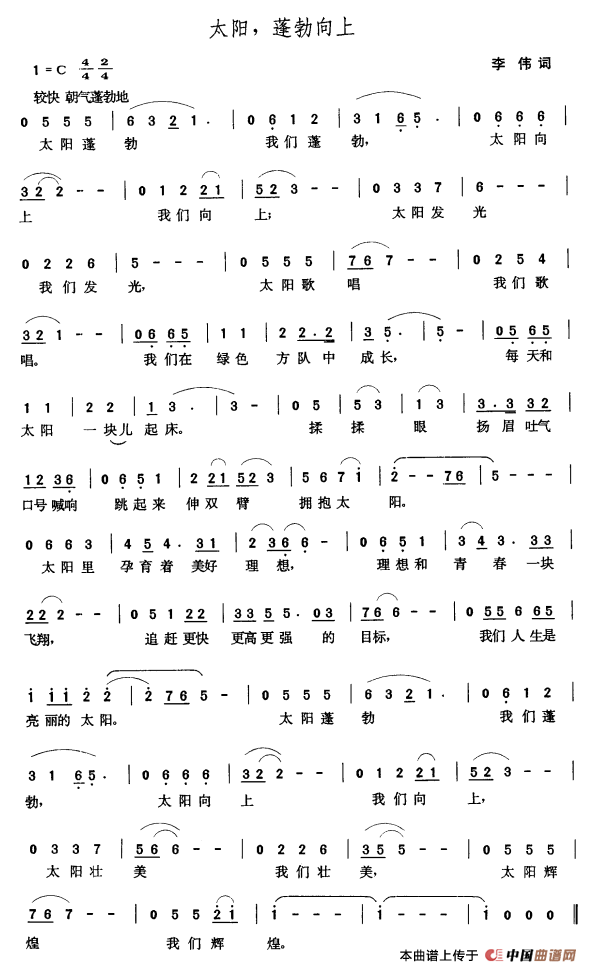 太阳，蓬勃向上
1=C 4/4 2/4 李 伟 词
较快 朝气蓬勃地
0 5 5 5 | 6 3 2 1 . | 0 6 1 2 | 3 1 6 5 . | 0 6 6 6 |
太 阳 蓬 勃 我 们 蓬 勃， 太 阳 向
3 2 2 - - | 0 1 2 2 1 | 5 2 3 - - | 0 3 3 7 | 6 - - - |
上 我 们 向 上； 太 阳 发 光
0 2 2 6 | 5 - - - | 0 5 5 5 | 7 6 7 - - | 0 2 5 4 |
我 们 发 光， 太 阳 歌 唱 我 们 歌
3 2 1 - - | 0 6 6 5 | 1 1 | 2 2 . 2 | 3 5 . | 5 - | 0 5 6 5 |
唱。 我 们 在 绿 色 方 队 中 成 长， 每 天 和
1 1 | 2 2 | 1 3 . | 3 - | 0 5 | 5 3 | 1 3 | 3 . 3 3 2 |
太 阳 一 块 儿 起 床。 揉 揉 眼 扬 眉 吐 气
1 2 3 6 | 0 6 5 1 | 2 2 1 5 2 3 | 5 6 7 1 | 2 - - 7 6 | 5 - - - |
口 号 喊 响 跳 起 来 伸 双 臂 拥 抱 太 阳。
0 6 6 3 | 4 5 4 . 3 1 | 2 3 6 6 - | 0 6 5 1 | 2 2 3 . 3 3 |
太 阳 里 孕 育 着 美 好 理 想， 理 想 和 青 春 一 块
2 2 2 - - | 0 5 1 2 2 | 3 3 5 5 . 0 3 | 7 6 6 - - | 0 5 5 6 6 5 |
飞 翔， 追 赶 更 快 更 高 更 强 的 目 标， 我 们 人 生 是
1 1 1 2 2 | 2 7 6 5 - | 0 5 5 5 | 6 3 2 1 . | 0 6 1 2 |
亮 丽 的 太 阳。 太 阳 蓬 勃 我 们 蓬
3 1 6 5 . | 0 6 6 6 | 3 2 2 - - | 0 1 2 2 1 | 5 2 3 - - |
勃， 太 阳 向 上 我 们 向 上，
0 3 3 7 | 5 6 6 - - | 0 2 2 6 | 3 5 5 - - | 0 5 5 5 |
太 阳 壮 美 我 们 壮 美， 太 阳 辉
7 6 7 - - | 0 5 5 2 1 | 1 - - - | 1 - - - | 1 0 0 0 ‖
煌 我 们 辉 煌。
本曲谱上传于 中国曲谱网